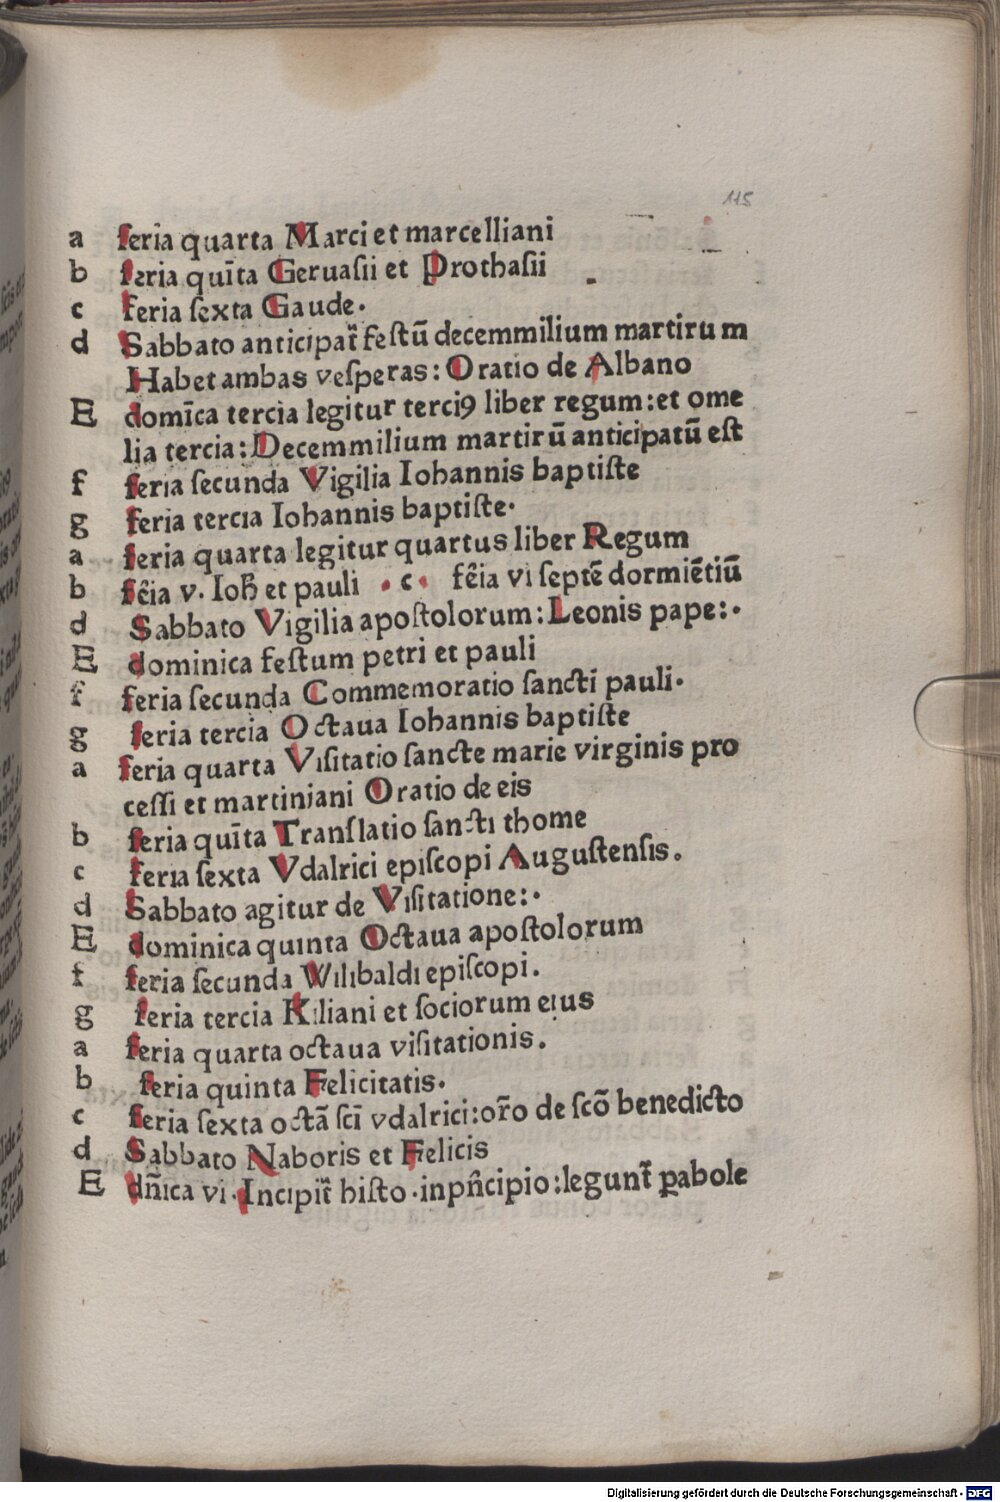 115
a feria quarta Marci et marcelliani
b feria quīta Geruasii et Prothasii
c feria ſexta Gaude.
d Sabbato anticipat̄ feſtū decemmilium martirum
Habet ambas veſperas: Oratio de Albano
E domīca tercia legitur terciꝯ liber regum: et ome
lia tercia: Decemmilium martirū anticipatū eſt
f feria ſecunda Vigilia Iohannis baptiſte
g feria tercia Iohannis baptiſte.
a feria quarta legitur quartus liber Regum
b fēia v. Ioh̄ et pauli . c . fēia vi ſeptē dormiētiū
d Sabbato Vigilia apoſtolorum: Leonis pape:.
E dominica feſtum petri et pauli
f feria ſecunda Commemoratio ſancti pauli.
g feria tercia Octaua Iohannis baptiſte
a feria quarta Viſitatio ſancte marie virginis pro
ceſſi et martiniani Oratio de eis
b feria quīta Tranſlatio ſancti thome
c feria ſexta Vdalrici epiſcopi Auguſtenſis.
d Sabbato agitur de Viſitatione:.
E dominica quinta Octaua apoſtolorum
f feria ſecunda Wilibaldi epiſcopi.
g feria tercia Kiliani et ſociorum eius
a feria quarta octaua viſitationis.
b feria quinta Felicitatis.
c feria ſexta octā ſcī vdalrici: or̄o de ſcō benedicto
d Sabbato Naboris et Felicis
E dn̄ica vi. Incipit̄ hiſto. in pn̄cipio: legunt̄ ꝑabole
Digitalisierung gefördert durch die Deutsche Forschungsgemeinschaft - DFG